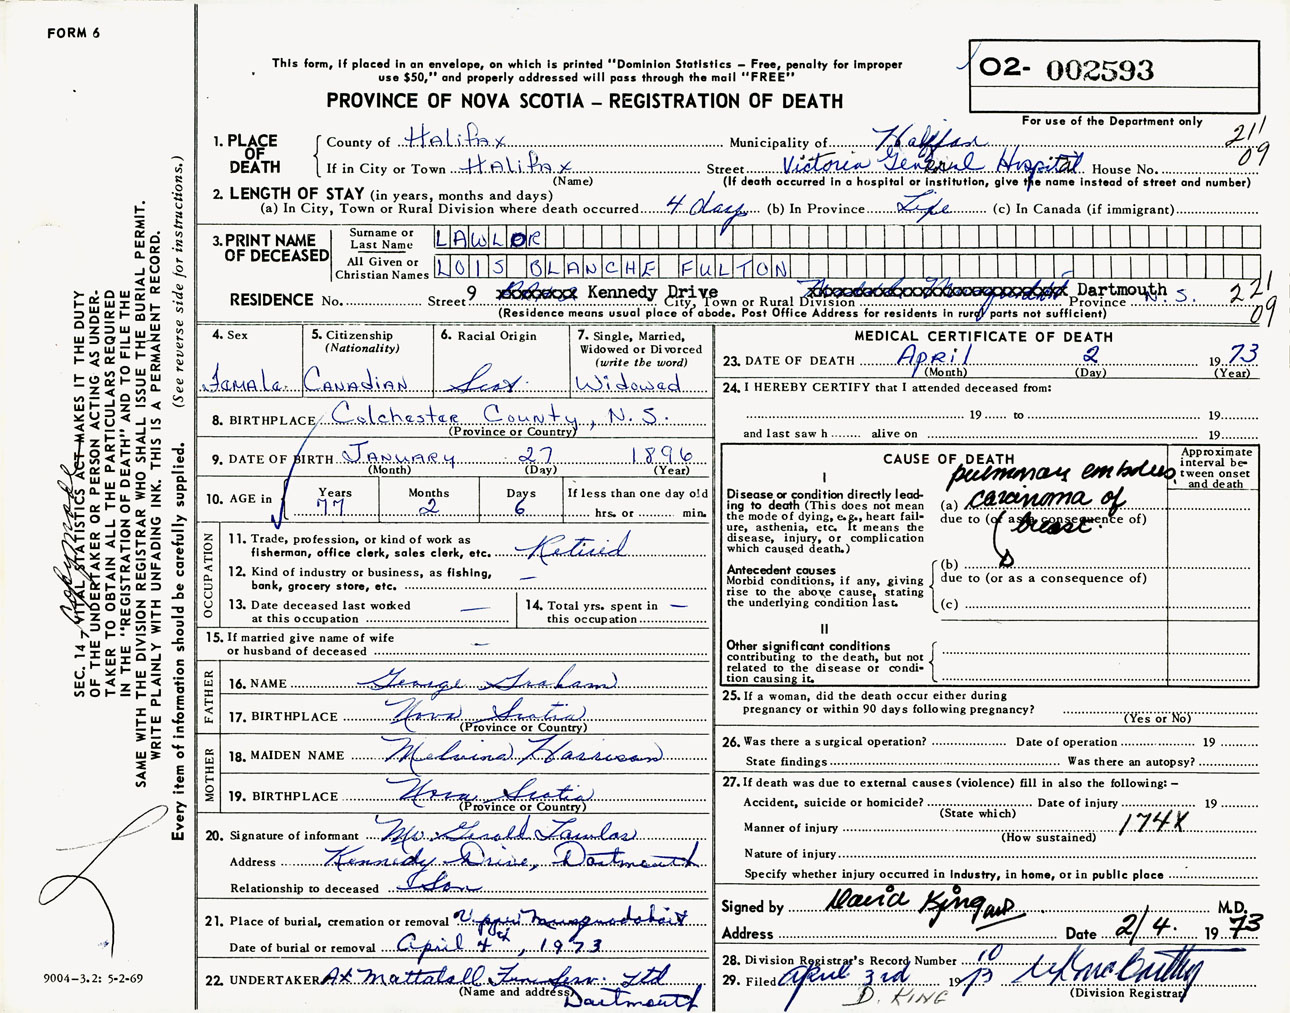 FORM 6
This form, if placed in an envelope, on which is printed "Dominion Statistics – Free, penalty for improper
use $50," and properly addressed will pass through the mail "FREE"
O2- 002593
PROVINCE OF NOVA SCOTIA – REGISTRATION OF DEATH
For use of the Department only
1. PLACE OF DEATH
County of Halifax Municipality of Halifax 211
If in City or Town Halifax Street Victoria General Hospital House No. 09
(Name) (If death occurred in a hospital or institution, give the name instead of street and number)
2. LENGTH OF STAY (in years, months and days)
(a) In City, Town or Rural Division where death occurred 4 days (b) In Province Life (c) In Canada (if immigrant)
3. PRINT NAME OF DECEASED
Surname or Last Name LAWLOR
All Given or Christian Names LOIS BLANCHE FULTON
RESIDENCE No. Street 9 Kennedy Drive City, Town or Rural Division Dartmouth Province N.S. 221
09
(Residence means usual place of abode. Post Office Address for residents in rural parts not sufficient)
4. Sex Female
5. Citizenship (Nationality) Canadian
6. Racial Origin Scot
7. Single, Married, Widowed or Divorced (write the word) Widowed
8. BIRTHPLACE Colchester County, N.S.
(Province or Country)
9. DATE OF BIRTH January 27 1896
(Month) (Day) (Year)
10. AGE in Years 77 Months 2 Days 6 If less than one day old
hrs. or min.
OCCUPATION
11. Trade, profession, or kind of work as
fisherman, office clerk, sales clerk, etc. Retired
12. Kind of industry or business, as fishing,
bank, grocery store, etc. –
13. Date deceased last worked
at this occupation –
14. Total yrs. spent in
this occupation –
15. If married give name of wife
or husband of deceased –
FATHER
16. NAME George Graham
17. BIRTHPLACE Nova Scotia
(Province or Country)
MOTHER
18. MAIDEN NAME Melvina Harrison
19. BIRTHPLACE Nova Scotia
(Province or Country)
20. Signature of informant Mr. Gerald Lawlor
Address Kennedy Drive, Dartmouth
Relationship to deceased Son
21. Place of burial, cremation or removal Upper Musquodoboit
Date of burial or removal April 4th, 1973
22. UNDERTAKER Mattatall Ltd
(Name and address) Dartmouth
MEDICAL CERTIFICATE OF DEATH
23. DATE OF DEATH April 2 1973
(Month) (Day) (Year)
24. I HEREBY CERTIFY that I attended deceased from:
19 to 19
and last saw h alive on 19
CAUSE OF DEATH
Approximate interval between onset and death
I
Disease or condition directly lead-
ing to death (This does not mean
the mode of dying, e.g., heart fail-
ure, asthenia, etc. It means the
disease, injury, or complication
which caused death.)
pulmonary embolus
(a) carcinoma of
due to (or as a consequence of)
breast
Antecedent causes
Morbid conditions, if any, giving
rise to the above cause, stating
the underlying condition last.
(b)
due to (or as a consequence of)
(c)
II
Other significant conditions
contributing to the death, but not
related to the disease or condi-
tion causing it.
25. If a woman, did the death occur either during
pregnancy or within 90 days following pregnancy?
(Yes or No)
26. Was there a surgical operation? Date of operation 19
State findings Was there an autopsy?
27. If death was due to external causes (violence) fill in also the following: –
Accident, suicide or homicide? Date of injury 19
(State which)
Manner of injury 174X
(How sustained)
Nature of injury
Specify whether injury occurred in Industry, in home, or in public place
Signed by David King M.D.
Address Date 2/4 1973
28. Division Registrar's Record Number 10
29. Filed April 3rd 1973
(Division Registrar)
D. KING
SEC. 14 – VITAL STATISTICS ACT MAKES IT THE DUTY
OF THE UNDERTAKER OR PERSON ACTING AS UNDER-
TAKER TO OBTAIN ALL THE PARTICULARS REQUIRED
IN THE "REGISTRATION OF DEATH" AND TO FILE THE
SAME WITH THE DIVISION REGISTRAR WHO SHALL ISSUE THE BURIAL PERMIT.
WRITE PLAINLY WITH UNFADING INK. THIS IS A PERMANENT RECORD.
Every item of information should be carefully supplied. (See reverse side for instructions.)
9004–3.2: 5-2-69